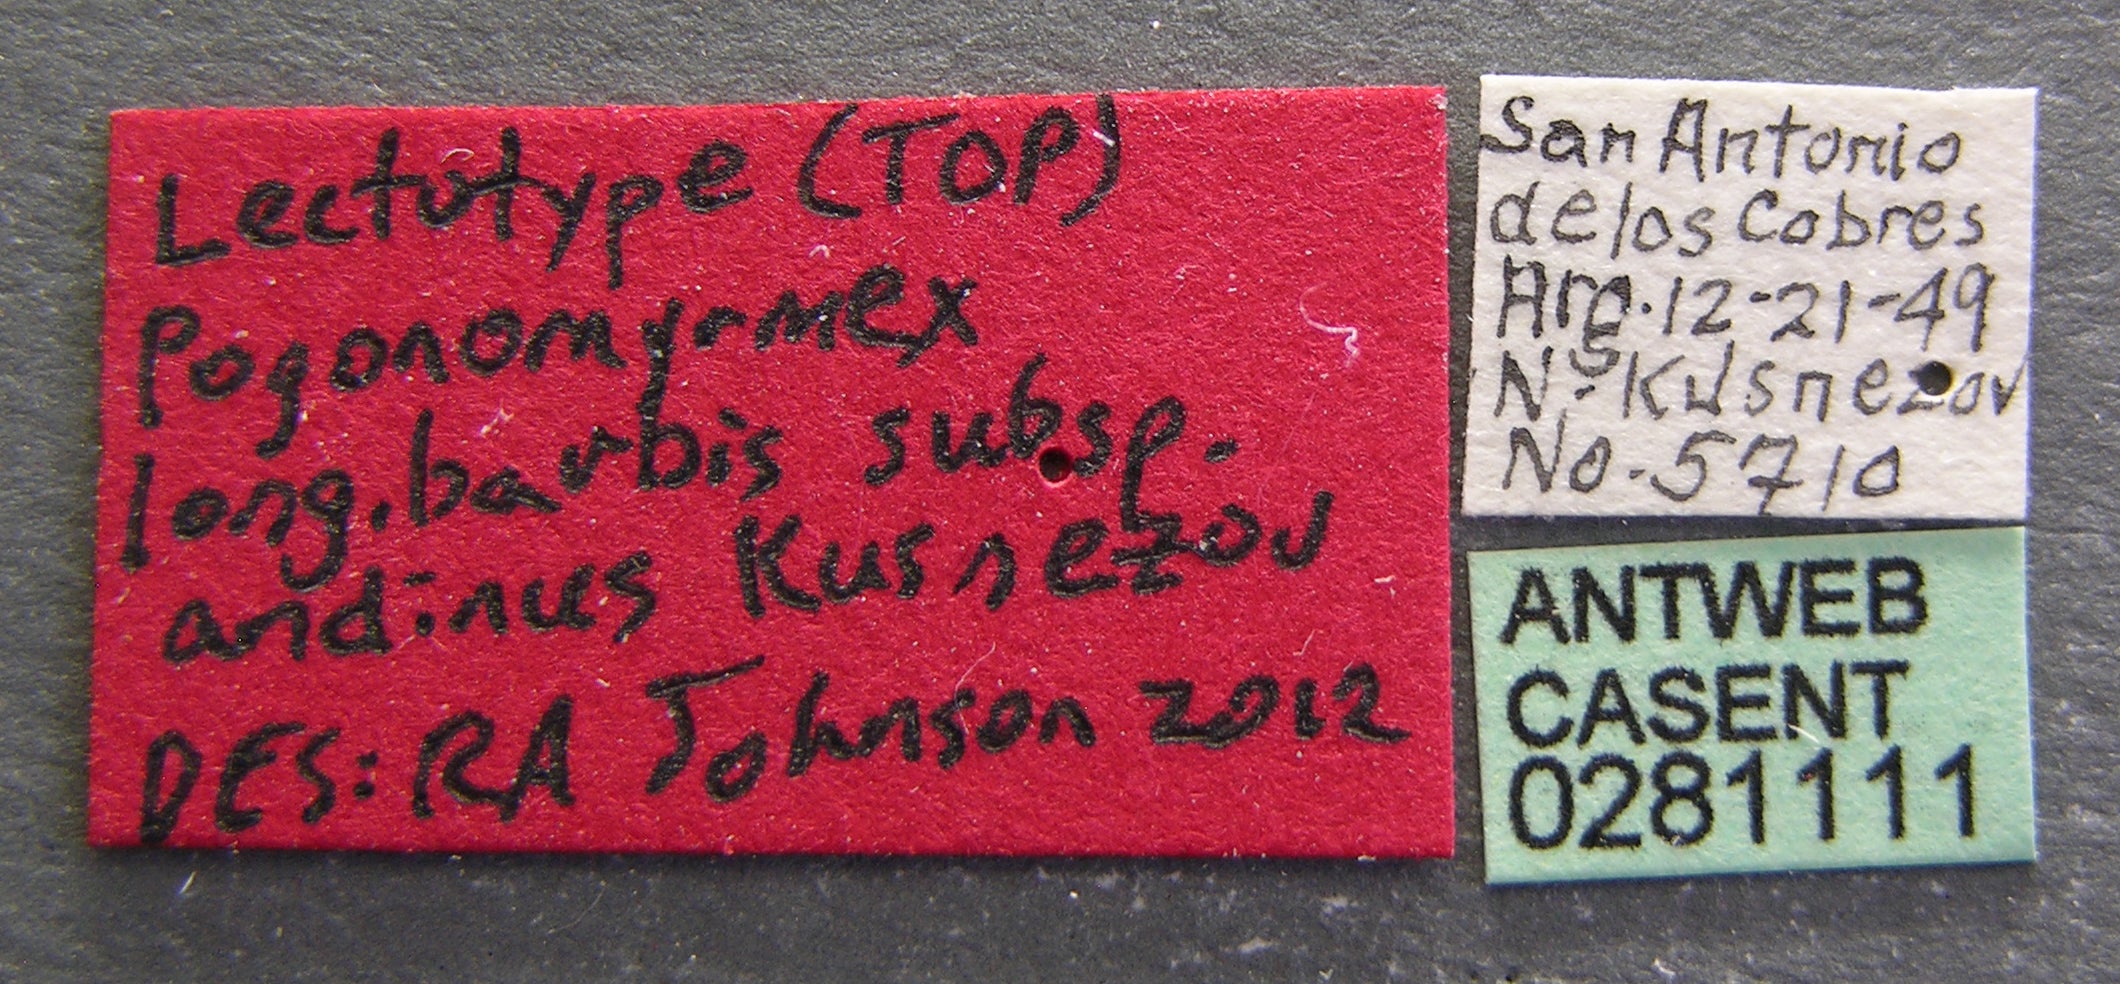 Lectotype (TOP)
Pogonomyrmex
long.barbis subsp.
andinus Kusnezov
DES: RA Johnson 2012
San Antonio
de los Cobres
Arg. 12-21-49
N. Kusnezov
No. 5710
ANTWEB
CASENT
0281111